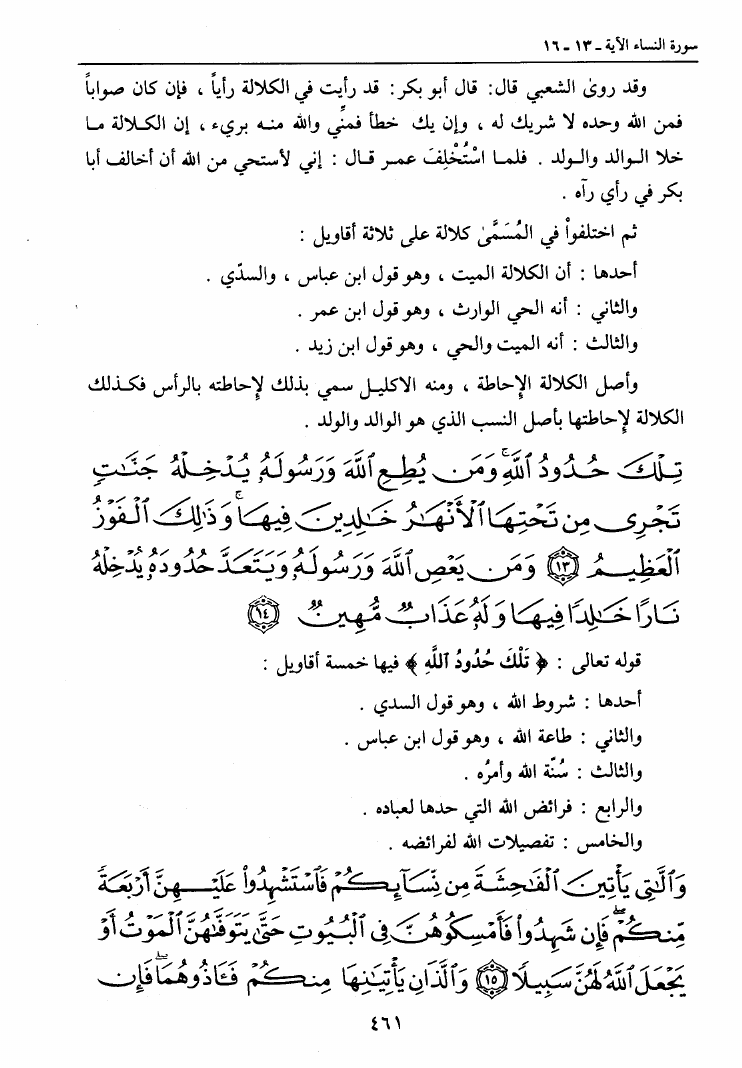 سورة النساء الآية ـ ١٣ ـ ١٦
وقد روىٰ الشعبي قال: قال أبو بكر: قد رأيت في الكلالة رأياً ، فإن كان صواباً
فمن الله وحده لا شريك له ، وإن يك خطأ فمنِّي والله منه بريء ، إن الكلالة ما
خلا الوالد والولد . فلما اسْتُخْلِفَ عمر قال : إني لأستحي من الله أن أخالف أبا
بكر في رأي رآه .
ثم اختلفواْ في المُسَمَّىٰ كلالة على ثلاثة أقاويل :
أحدها : أن الكلالة الميت ، وهو قول ابن عباس ، والسدّي .
والثاني : أنه الحي الوارث ، وهو قول ابن عمر .
والثالث : أنه الميت والحي ، وهو قول ابن زيد .
وأصل الكلالة الإحاطة ، ومنه الاكليل سمي بذلك لإحاطته بالرأس فكذلك
الكلالة لإحاطتها بأصل النسب الذي هو الوالد والولد .
تِلْكَ حُدُودُ ٱللَّهِۚ وَمَن يُطِعِ ٱللَّهَ وَرَسُولَهُۥ يُدْخِلْهُ جَنَّٰتٍ
تَجْرِى مِن تَحْتِهَا ٱلْأَنْهَٰرُ خَٰلِدِينَ فِيهَاۚ وَذَٰلِكَ ٱلْفَوْزُ
ٱلْعَظِيمُ ١٣ وَمَن يَعْصِ ٱللَّهَ وَرَسُولَهُۥ وَيَتَعَدَّ حُدُودَهُۥ يُدْخِلْهُ
نَارًا خَٰلِدًا فِيهَا وَلَهُۥ عَذَابٌ مُّهِينٌ ١٤
قوله تعالى : ﴿ تِلْكَ حُدُودُ ٱللَّهِ ﴾ فيها خمسة أقاويل :
أحدها : شروط الله ، وهو قول السدي .
والثاني : طاعة الله ، وهو قول ابن عباس .
والثالث : سُنّة الله وأمرُه .
والرابع : فرائض الله التي حدها لعباده .
والخامس : تفصيلات الله لفرائضه .
وَٱلَّٰتِى يَأْتِينَ ٱلْفَٰحِشَةَ مِن نِّسَآئِكُمْ فَٱسْتَشْهِدُوا۟ عَلَيْهِنَّ أَرْبَعَةً
مِّنكُمْۖ فَإِن شَهِدُوا۟ فَأَمْسِكُوهُنَّ فِى ٱلْبُيُوتِ حَتَّىٰ يَتَوَفَّىٰهُنَّ ٱلْمَوْتُ أَوْ
يَجْعَلَ ٱللَّهُ لَهُنَّ سَبِيلًا ١٥ وَٱلَّذَانِ يَأْتِيَٰنِهَا مِنكُمْ فَـَٔاذُوهُمَاۖ فَإِن
٤٦١